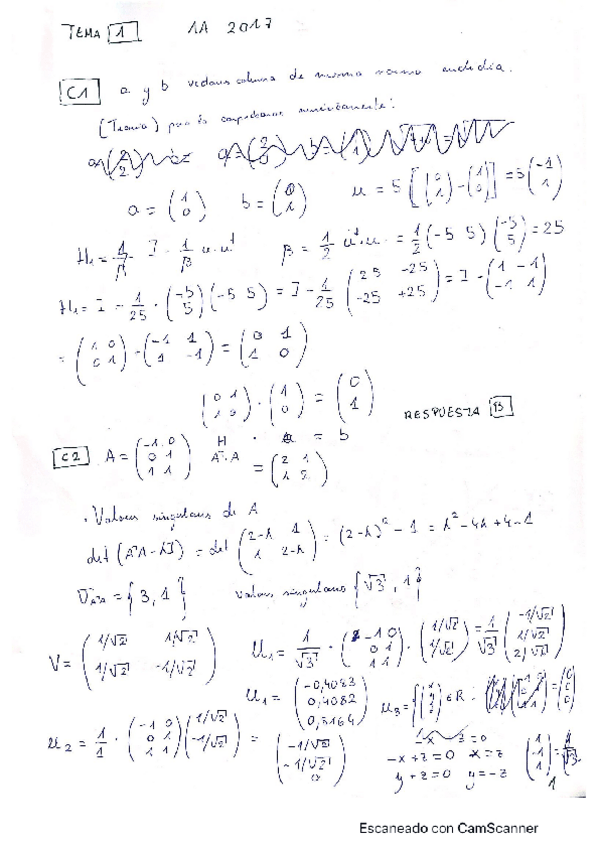 TEMA 1 1A 2017
C1 a y b vectores columna de misma norma euclidia.
(Teoria) para comprobamos numéricamente:
a = (1 0) b = (0 1) u = 5 [(0 1) - (1 0)] = 5 (-1 1)
H₁ = I - 1/β u·uᵗ β = 1/2 uᵗ·u = 1/2 (-5 5) (-5 5) = 25
H₁ = I - 1/25 · (-5 5) (-5 5) = I - 1/25 (25 -25 -25 +25) = I - (1 -1 -1 1)
= (1 0 0 1) - (-1 1 1 -1) = (0 1 1 0)
(0 1 1 0) · (1 0) = (0 1) RESPUESTA B
H · a = b
C2 A = (-1 0 0 1 1 1) Aᵗ·A = (2 1 1 2)
· Valores singulares de A
det (AᵗA - λI) = det (2-λ 1 1 2-λ) = (2-λ)² - 1 = λ² - 4λ + 4 - 1
= {3, 1} valores singulares {√3, 1}
V = (1/√2 1/√2 1/√2 -1/√2) u₁ = 1/√3 · (-1 0 0 1 1 1) · (1/√2 1/√2) = 1/√3 (-1/√2 1/√2 2/√2)
u₁ = (-0,4083 0,4082 0,8164) u₃ = {(x y z) ∈ R : = (0 0 0)
u₂ = 1/1 · (-1 0 0 1 1 1) (1/√2 -1/√2) = (-1/√2 -1/√2 0)
-x + z = 0 x = z
y + z = 0 y = -z
(1 -1 1) = 1/√3
Escaneado con CamScanner